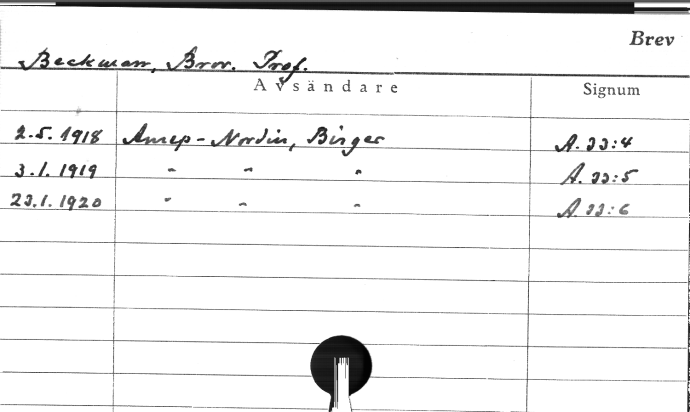 Brev
Beckman, Bror. Prof.
Avsändare Signum
2.5. 1918 Anrep-Nordin, Birger A. 33:4
3.1. 1919 " " " A. 33:5
23.1. 1920 " " " A. 33:6